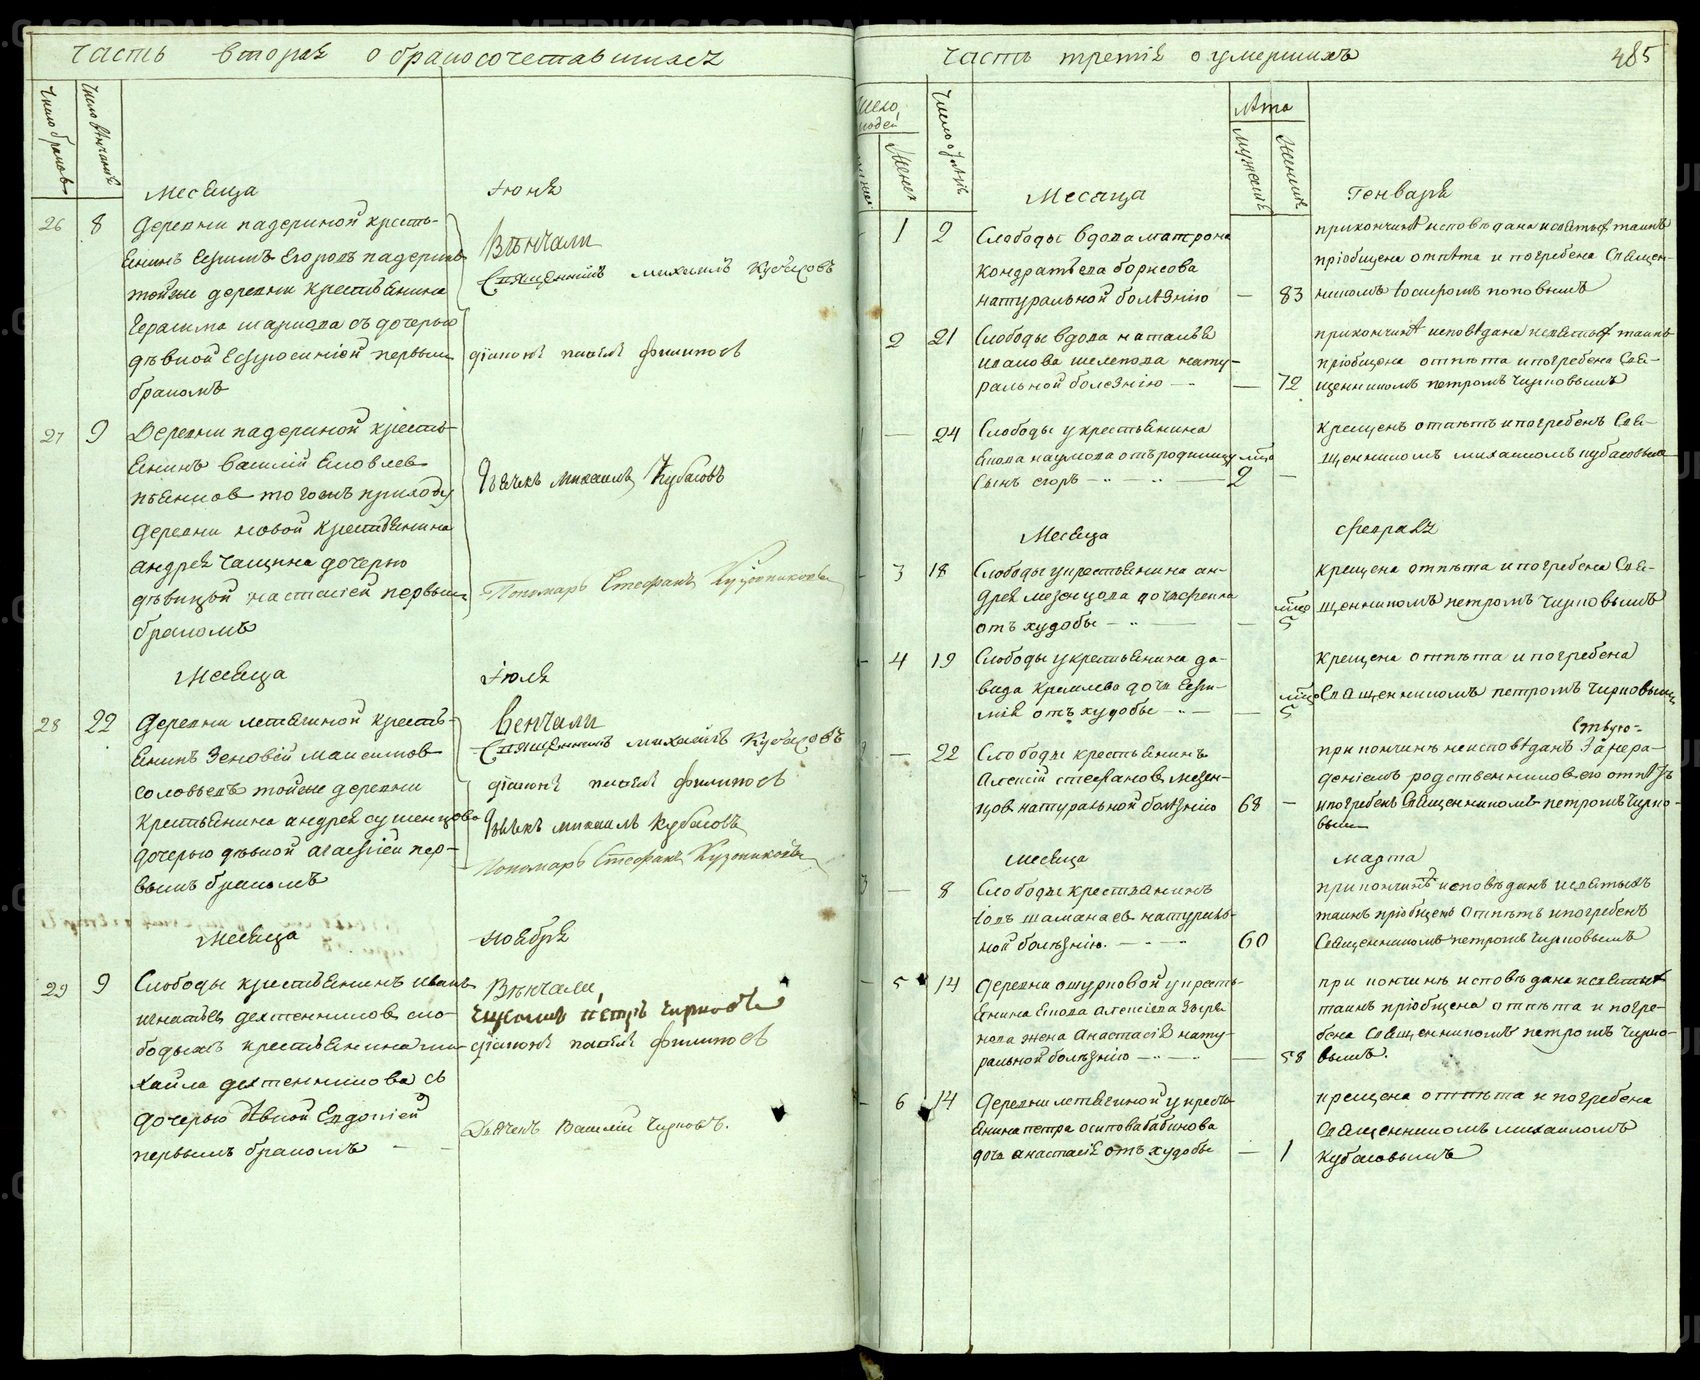 Часть вторая о бракосочетавшихся
Число браковъ
Число венчанiя
Месяца Iюня
26 8 Деревни падериной кресть-
янинъ Ефимъ Егоровъ падеринъ
тойже деревни крестьянина
Герасима шармова съ дочерью
девкой Ефросинiей первымъ
бракомъ
Вѣнчали
Священникъ михаилъ Кубасовъ
дiаконъ павелъ филиповъ
27 9 Деревни падериной кресть-
янинъ василiй Яковлев
пьянков тогожъ приходу
деревни новой крестьянина
андрея Чащина дочерью
дѣвицой настасiей первымъ
бракомъ
Дьячекъ михаилъ Кубасовъ
Пономарь Стефанъ
Месяца Iюля
28 22 Деревни летягиной кресть-
янинъ Зеновiй максимов
соловьевъ тойже деревни
крестьянина андрея сушенцова
дочерью дѣвкой агафiей пер-
вымъ бракомъ
Венчали
Священникъ михаилъ Кубасовъ
дiаконъ павелъ филиповъ
Дьячекъ михаилъ Кубасовъ
Пономарь Стефанъ
Месяца Ноября
29 9 Слободы крестьянинъ иванъ
игнатьев дехтенников сло-
бодыжъ крестьянина ми-
хаила дехтенникова съ
дочерью дѣвкой Евдокiей
первымъ бракомъ —
Вѣнчали,
Священникъ петръ Чирковъ
дiаконъ павелъ филиповъ
Дьячекъ Василiй Чирковъ.
Часть третiя о умершихъ 485
Число людей
Женск
Число умерш
Лѣта
Мужеска
Женска
Месяца Генваря
1 2 Слободы вдова матрона
кондратьева борисова
натуральной болѣзнiю — 83
прикончинѣ исповѣдана исвятыхъ таинъ
прiобщена отпѣта и погребена Священ-
никомъ Iосифомъ поповымъ
2 21 Слободы вдова наталья
иванова шелепова нату-
ральной болезнiю — — 72
прикончинѣ исповѣдана исвятыхъ таинъ
прiобщена отпѣта ипогребена Свя-
щенникомъ петромъ Чирковымъ
— 24 Слободы укрестьянина
Якова наумова отъ родимцу мца
сынъ егоръ — 2 —
крещенъ отпѣтъ ипогребенъ Свя-
щенникомъ михаиломъ кубасовымъ
Месяца февраля
3 18 Слободы укрестьянина ан-
дрея мезенцова дочь фекла
отъ худобы — — мцов 5
крещена отпѣта ипогребена Свя-
щенникомъ петромъ Чирковымъ
4 19 Слободы укрестьянина да-
вида Крылова дочь Евфи-
мiя отъ худобы — — мцов 5
крещена отпѣта ипогребена
Священникомъ петромъ Чирковымъ
— 22 Слободы крестьянинъ
Алексiй стефанов мезен-
цов натуральной болѣзнiю 68 —
прикончинѣ неисповѣданъ За нера-
денiемъ родственников его отпѣтъ
ипогребенъ Священникомъ петромъ Чирко-
вымъ
месяца марта
— 8 Слободы крестьянинъ
Iовъ шаманаев натураль-
ной болѣзнiю. — 60
прикончинѣ исповѣданъ исвятыхъ
таинъ прiобщенъ отпѣтъ ипогребенъ
Священникомъ петромъ Чирковымъ
5 14 Деревни ошурковой укресть-
янина Якова алексѣева Зыря-
нова жена анастасiя нату-
ральной болѣзнiю — — 58
при кончинѣ исповѣдана исвятыхъ
таинъ прiобщена отпѣта и погре-
бена Священникомъ петромъ Чирко-
вымъ.
6 14 Деревни летягиной укресть-
янина петра осипова бабинова
дочь анастасiя отъ худобы — 1
крещена отпѣта и погребена
Священникомъ михаиломъ
Кубасовымъ